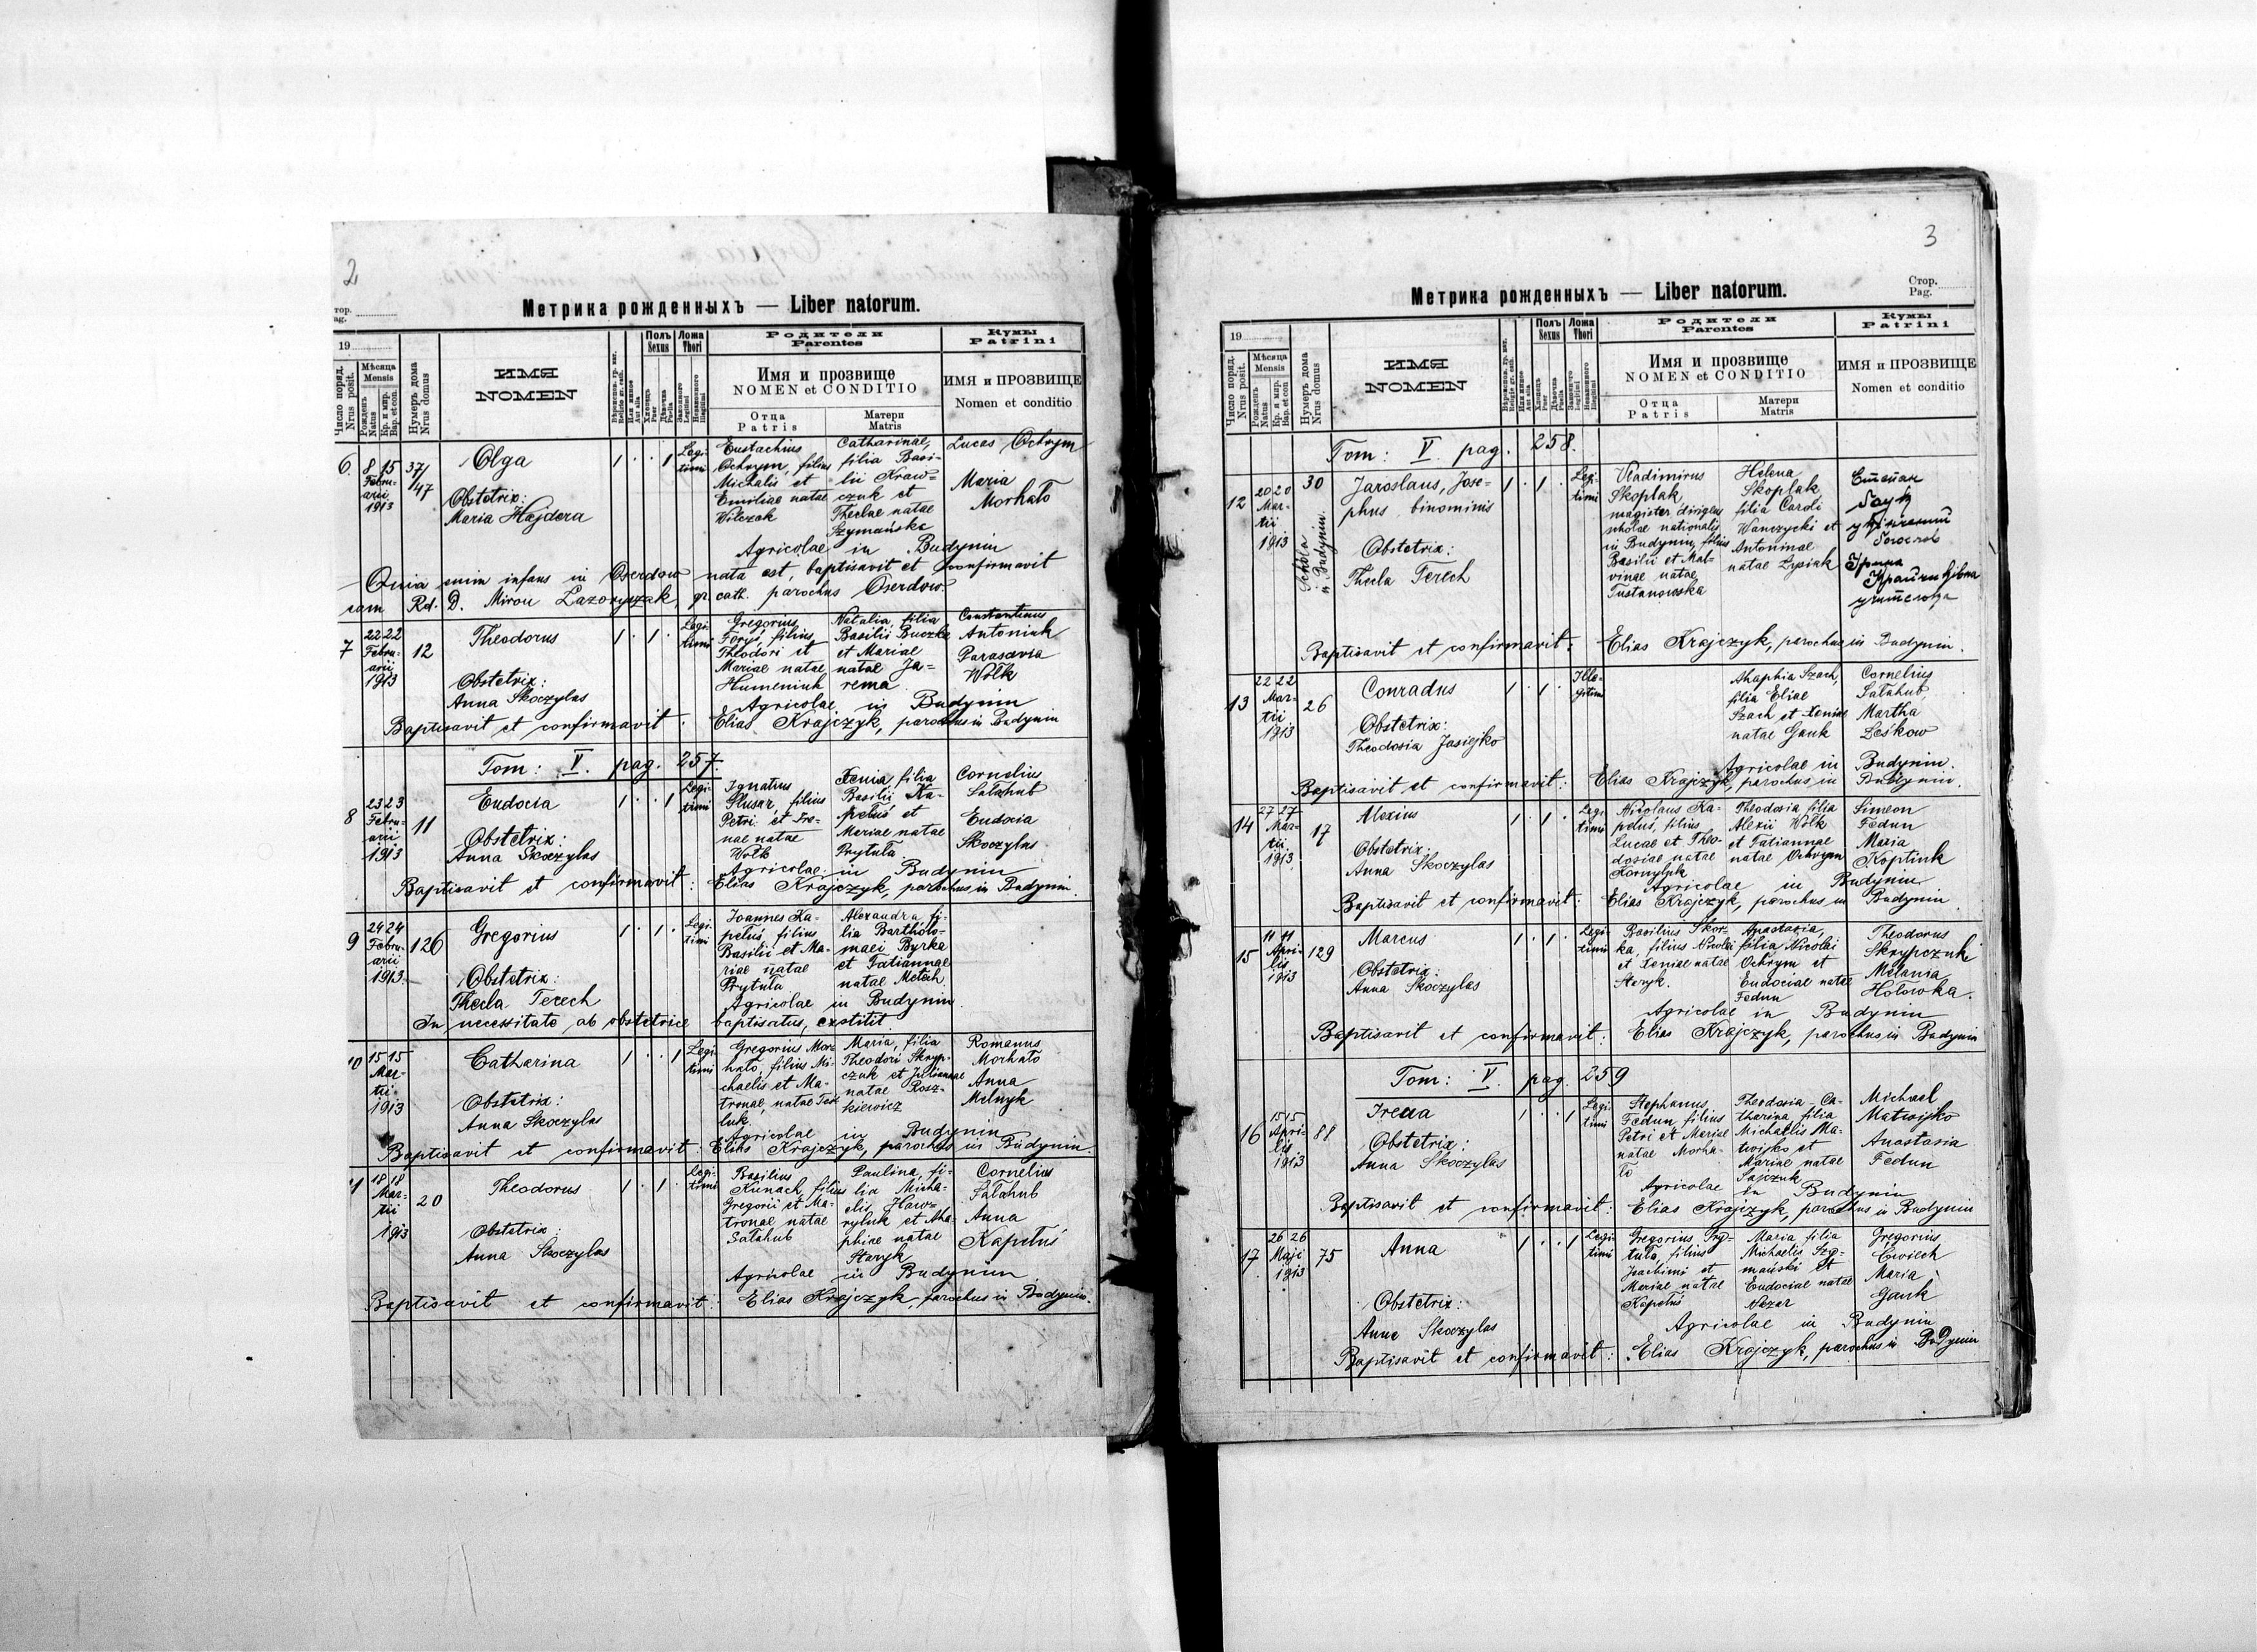 2
Стор.
Pag.
Метрика рожденныхъ — Liber natorum.
19
Число поряд.
Nrus posit.
Мѣсяца
Mensis
Рожденъ
Natus
Кр. и мир.
Bap. et con.
Нумеръ дома
Nrus domus
ИМЯ
NOMEN
Полъ
Sexus
Хлопець
Puer
Дѣвочка
Puella
Ложа
Thori
Законного
Legitimi
Незаконного
Illegitimi
Родители
Parentes
Имя и прозвище
NOMEN et CONDITIO
Отца
Patris
Матери
Matris
Кумы
Patrini
ИМЯ и ПРОЗВИЩЕ
Nomen et conditio
6 8 15 Febru-
arii
1913
37/47
Olga
Obstetrix:
Maria Hajdera
1 . . 1
Legi-
timi
Eustachius
Ochrym, filius
Michalis et
Emiliae natae
Wilczak
Catharinae,
filia Basi-
lii Kraw-
czuk et
Theclae natae
Szymańska
Lucas Ochrym
Maria
Morhało
Agricolae in Budynin
Quia enim infans in Oserdow nata est, baptisavit et confirmavit
eam Rd. D. Miron Lazoryszak, gr. cath. parochus Oserdow.
7 22 22
Febru-
arii
1913
12
Theodorus
Obstetrix:
Anna Skoczylas
1 . 1 .
Legi-
timi
Gregorius
Forys, filius
Theodori et
Mariae natae
Humeniuk
Natalia, filia
Basilii Buczko
et Mariae
natae Ja-
rema
Constantinus
Antoniuk
Parasavia
Wołk
Agricolae in Budynin
Baptisavit et confirmavit: Elias Krajczyk, parochus in Budynin
Tom: V. pag. 257.
8 23 23
Febru-
arii
1913
11
Eudocia
Obstetrix:
Anna Skoczylas
1 . . 1
Legi-
timi
Ignatius
Slusar, filius
Petri et Ire-
nae natae
Wołk
Xenia filia
Basilii Ka-
petuś et
Mariae natae
Prytuła
Cornelius
Sałahub
Eudocia
Skoczylas
Agricolae in Budynin
Baptisavit et confirmavit: Elias Krajczyk, parochus in Budynin.
9 24 24
Febru-
arii
1913
126
Gregorius
Obstetrix:
Thecla Terech
1 . 1 .
Legi-
timi
Joannes Ka-
petuś, filius
Basilii et Ma-
riae natae
Prytuła
Alexandra fi-
lia Bartholo-
maei Byrka
et Tatiannae
natae Metech
Agricolae in Budynin.
In necessitate ab obstetrice baptisatus, exstitit
10 15 15
Mar-
tii
1913
Catharina
Obstetrix:
Anna Skoczylas
1 . . 1
Legi-
timi
Gregorius Mor-
hało, filius Mi-
chaelis et Ma-
tronae, natae
luk
Maria, filia
Theodori Skryp-
czuk et Juliannae
natae Rosz-
kiewicz
Romanus
Morhało
Anna
Melnyk
Agricolae in Budynin
Baptisavit et confirmavit: Elias Krajczyk, parochus in Budynin.
11 18 18
Mar-
tii
1913
20
Theodorus
Obstetrix:
Anna Skoczylas
1 . 1 .
Legi-
timi
Basilius
Kunach, filius
Gregorii et Ma-
tronae natae
Sałahub
Paulina, fi-
lia Micha-
elis Haw-
ryluk et Aha-
phiae natae
Staryk
Cornelius
Sałahub
Anna
Kapetuś
Agricolae in Budynin
Baptisavit et confirmavit: Elias Krajczyk, parochus in Budynin.
3
Стор.
Pag.
Метрика рожденныхъ — Liber natorum.
19
Число поряд.
Nrus posit.
Мѣсяца
Mensis
Рожденъ
Natus
Кр. и мир.
Bap. et con.
Нумеръ дома
Nrus domus
ИМЯ
NOMEN
Полъ
Sexus
Хлопець
Puer
Дѣвочка
Puella
Ложа
Thori
Законного
Legitimi
Незаконного
Illegitimi
Родители
Parentes
Имя и прозвище
NOMEN et CONDITIO
Отца
Patris
Матери
Matris
Кумы
Patrini
ИМЯ и ПРОЗВИЩЕ
Nomen et conditio
Tom: V. pag. 258.
12 20 20
Mar-
tii
1913
30
Schola
in Budynin
Jaroslaus, Jose-
phus binominis
Obstetrix:
Thecla Terech
1 . 1 .
Legi-
timi
Vladimirus
Skoplak
magister dirigens
scholae nationalis
in Budynin, filius
Basilii et Mal-
vinae natae
Tustanowska
Helena
Skoplak
filia Caroli
Wanczycki et
Antoninae
natae Lysiak
Степан
Ірина
Baptisavit et confirmavit: Elias Krajczyk, parochus in Budynin.
13 22 22
Mar-
tii
1913
26
Conradus
Obstetrix:
Theodosia Jasiejko
1 . 1 .
Ille-
gitimi
Ahaphia Szach,
filia Eliae
Szach et Xeniae
natae Gauk
Cornelius
Sałahub
Martha
Leśkow
Agricolae in Budynin.
Baptisavit et confirmavit: Elias Krajczyk, parochus in Budynin.
14 27 27
Mar-
tii
1913
17
Alexius
Obstetrix:
Anna Skoczylas
1 . 1 .
Legi-
timi
Nicolaus Ka-
petuś, filius
Lucae et Theo-
dosiae natae
Kornyluk
Theodosia filia
Alexii Wołk
et Tatiannae
natae Ochrym
Simeon
Fedun
Maria
Koptiuk
Agricolae in Budynin
Baptisavit et confirmavit: Elias Krajczyk, parochus in Budynin.
15 11 11
Apri-
lis
1913
129
Marcus
Obstetrix:
Anna Skoczylas
1 . 1 .
Legi-
timi
Basilius Skor-
ka, filius Nicolai
et Xeniae natae
Staryk.
Anastasia,
filia Nicolai
Ochrym et
Eudociae natae
Fedun
Theodorus
Skrypczuk
Melania
Hołowka.
Agricolae in Budynin
Baptisavit et confirmavit: Elias Krajczyk, parochus in Budynin
Tom: V. pag. 259
16 15 15
Apri-
lis
1913
81
Irena
Obstetrix:
Anna Skoczylas
1 . . 1
Legi-
timi
Stephanus
Fedun filius
Petri et Mariae
natae Morha-
ło
Theodosia Ca-
tharina filia
Michaelis Ma-
twijko et
Mariae natae
Sajczuk
Michael
Matwijko
Anastasia
Fedun
Agricolae in Budynin
Baptisavit et confirmavit: Elias Krajczyk, parochus in Budynin
17 26 26
Maji
1913
75
Anna
Obstetrix:
Anna Skoczylas
1 . . 1
Legi-
timi
Gregorius Pry-
tuła, filius
Joachimi et
Mariae natae
Kapetuś
Maria filia
Michaelis Szy-
mański et
Eudociae natae
Nazar
Gregorius
Cwiech
Maria
Gauk
Agricolae in Budynin
Baptisavit et confirmavit: Elias Krajczyk, parochus in Budynin